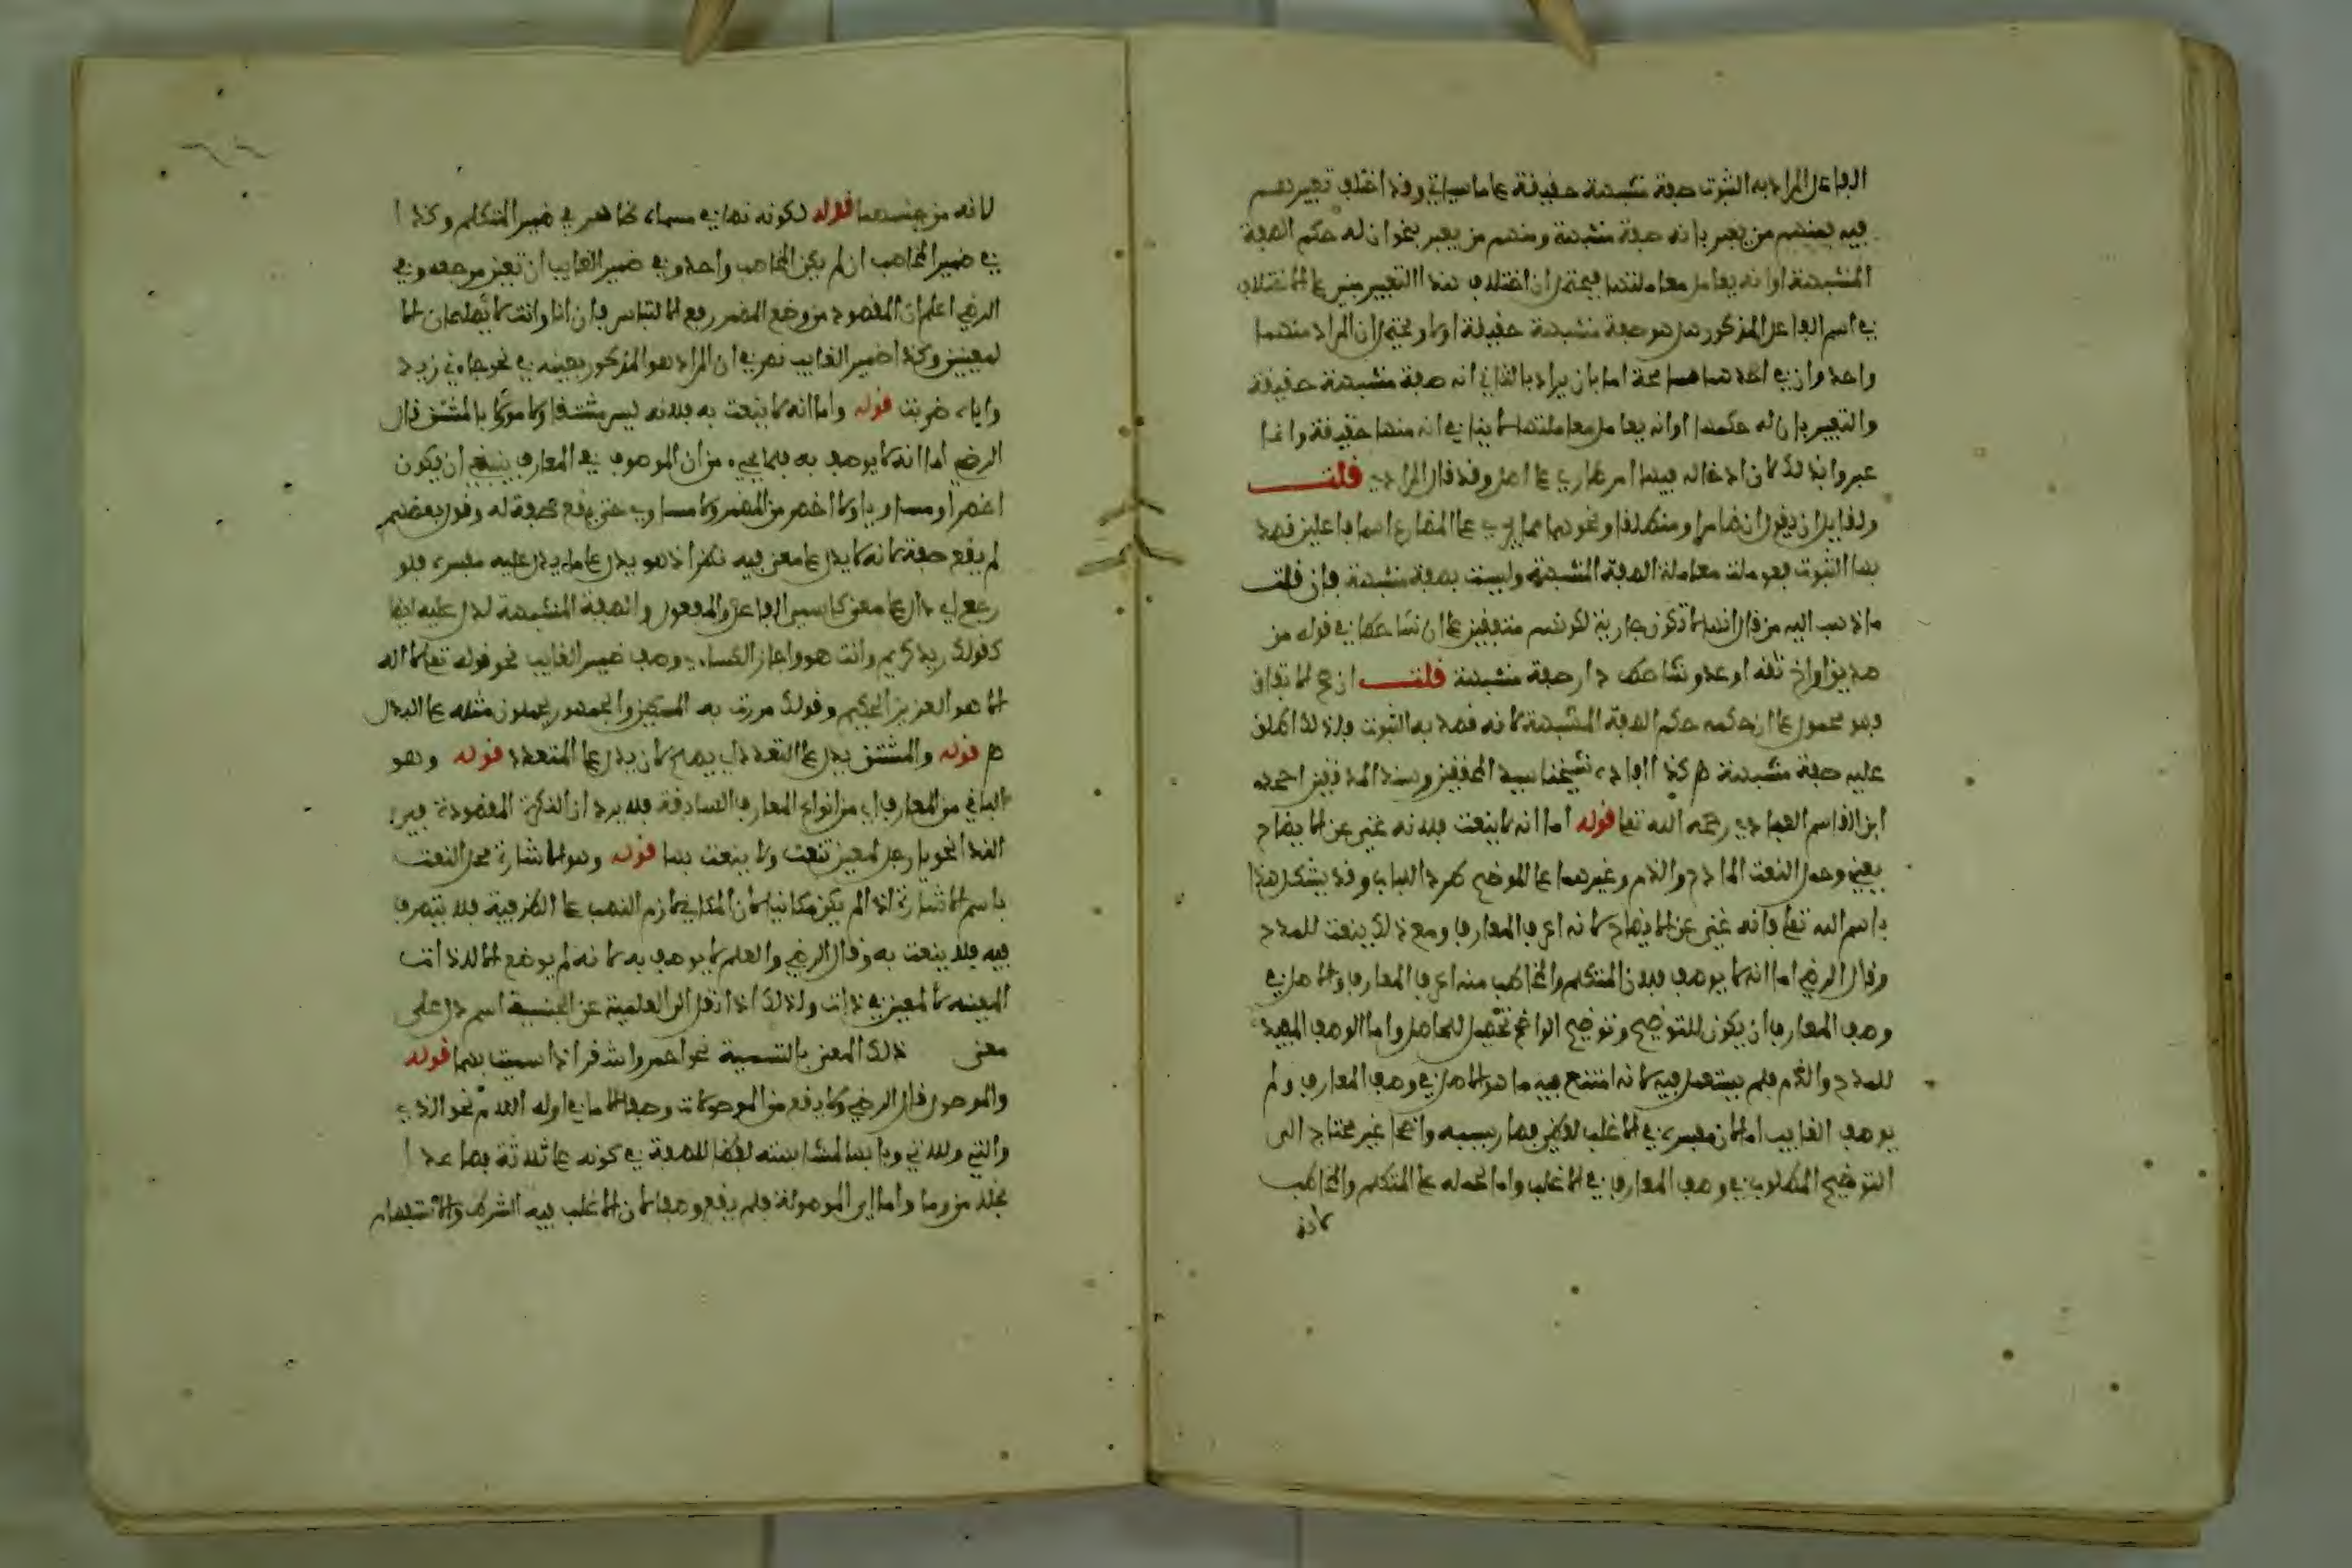 الفاعل المراد به الثبوت صفة مشبهة حقيقة على ما سياتي وقد اختلف تعبيرهم
فيه فمنهم من يعبر بانه صفة مشبهة ومنهم من يعبر بنحو ان له حكم الصفة
المشبهة او انه يعامل معاملتها فيحتمل ان اختلاف هذا التعبير مبني على الاختلاف
في اسم الفاعل المذكور هل هو صفة مشبهة حقيقة او لا ويحتمل ان المراد منهما
واحد وان في احدهما مسامحة اما بان يراد بالثاني انه صفة مشبهة حقيقة
والتعبير بان له حكمها او انه يعامل معاملتها لا ينافي انه منها حقيقة وانما
عبروا بذلك لان ادخاله فيها امر طاري على اصل وقد قال المرادي قلت
ولقايل ان يقول ان ضامرا ومنطلقا ونحوهما مما جرى على المضارع اسما فاعلين قصد
بهما الثبوت فعوملت معاملة الصفة المشبهة وليست بصفة مشبهة فان قلت
ما ذهب اليه من قال انها لا تكون جارية لكونهم متفقين على ان شاحطا في قوله من
صديق او اخي ثقة او عدو شاحط دارا صفة مشبهة قلت ان صح الاتفاق
فهو محمول على ان حكمه حكم الصفة المشبهة لانه قصد به الثبوت فلذلك اطلق
عليه صفة مشبهة هـ كذا افاده شيخنا سيد المحققين وسند المدققين احمد
ابن القاسم العبادي رحمه الله تعا قوله اما انه لا ينعت فلانه غني عن الايضاح
يعني وحمل النعت المادح والذام وغيرهما على الموضح طرد الباب وقد يشكل هذا
باسم الله تعا فانه غني عن الايضاح لانه اعرف المعارف ومع ذلك ينعت للمدح
وقال الرضي اما انه لا يوصف فلان المتكلم والمخاطب منه اعرف المعارف والاصل في
وصف المعارف ان يكون للتوضيح وتوضيح الواضح تحصيل للحاصل واما الوصف المفيد
للمدح والذم فلم يستعمل فيه لانه امتنع فيه ما هو الاصل في وصف المعارف ولم
يوصف الغايب اما لان مفسره في الاغلب لفظي فصار بسببه واضحا غير محتاج الى
التوضيح المطلوب في وصف المعارف في الاغلب واما لحمله على المتكلم والمخاطب
لانه
لانه من جنسهما قوله لكونه نصا في مسماه ظاهر في ضمير المتكلم وكذا
في ضمير المخاطب ان لم يكن المخاطب واحد وفي ضمير الغايب ان تعين مرجعه وفي
الرضي اعلم ان المقصود من وضع المضمر رفع الالتباس فان انا وانت لا يصلحان الا
لمعينين وكذا ضمير الغايب نص في ان المراد هو المذكور بعينه في نحو جاءني زيد
واياه ضربت قوله واما انه لا ينعت به فلانه ليس مشتقا ولا مؤولا بالمشتق قال
الرضي اما انه لا يوصف به فلما يجيء من ان الموصوف في المعارف ينبغي ان يكون
اخص او مساويا ولا اخص من المضمر ولا مساوي حتى يقع صفة له وقول بعضهم
لم يقع صفة لانه لا يدل على معنى فيه نظر اذ هو يدل على ما يدل عليه مفسره فلو
رجع الى دال على معنى كاسمي الفاعل والمفعول والصفة المشبهة لدل عليه ايضا
كقولك زيد كريم وانت هو واجاز الكسائي وصف ضمير الغايب نحو قوله تعا لا اله
الا هو العزيز الحكيم وقولك مررت به المسكين والجمهور يحملون مثله على البدل
هـ قوله والمشتق يدل على التعدد اي يصح لان يدل على المتعدد قوله وهو
الباقي من المعارف اي من انواع المعارف السابقة فلا يرد ان النكرة المقصودة في
الندا نحو يا رجل لمعين تنعت ولا ينعت بها قوله وهو الاشارة محل النعت
باسم الاشارة اذا لم يكن مكانيا لان المكاني لازم النصب على الظرفية فلا يتصرف
فيه فلا ينعت به وقال الرضي والعلم لا يوصف به لانه لم يوضع الا للذات
المعينة لا لمعنى في ذات ولذلك اذا نقل الى العلمية عن الجنسية اسم دل على
معنى ذلك المعنى بالتسمية نحو احمر واشقر اذا سميت بهما قوله
والموصول قال الرضي ولا يقع من الموصولات وصفا الا ما في اوله اللام نحو الذي
والتي واللاتي وبابها لمشابهته لفظا للصفة في كونه على ثلاثة فصاعدا
بخلاف من وما واما اي الموصولة فلم يقع وصفا لان الاغلب فيه الشرط والاستفهام